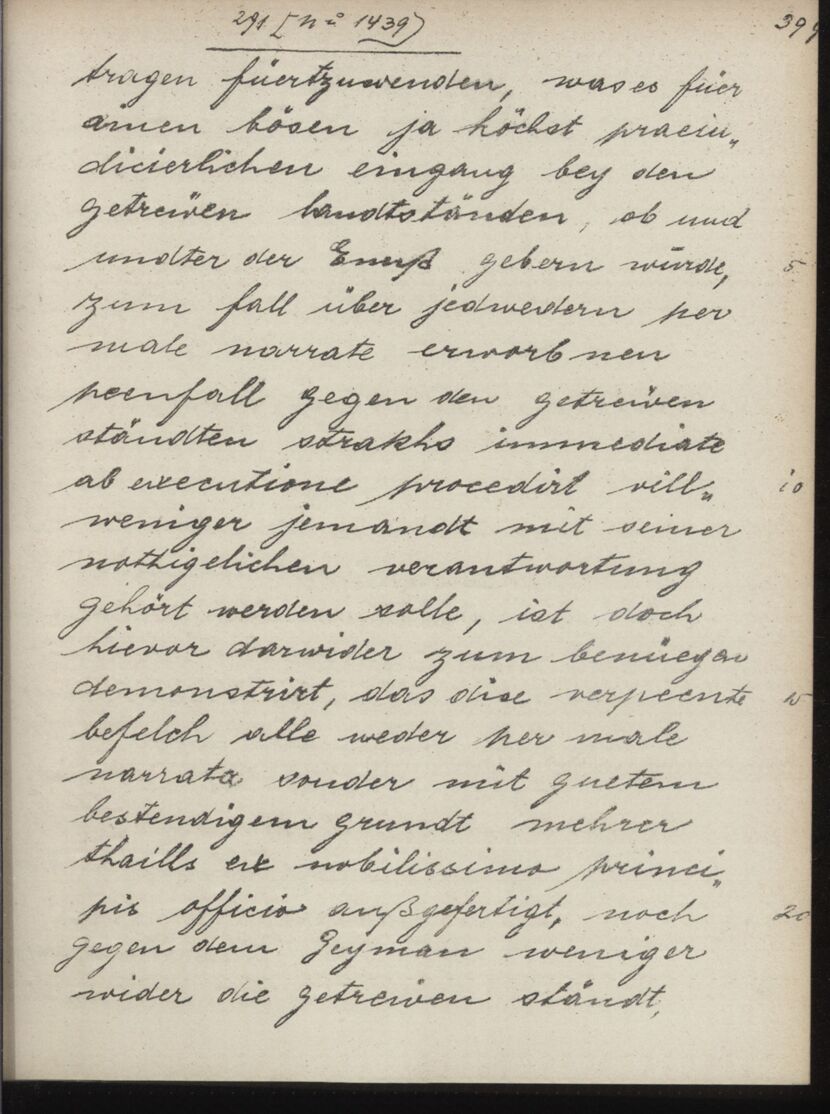 291 [n° 1439) 399
tragen füertzuwenden, was es füer
ainen bösen ja höchst praeiu„
dicierlichen eingang bey den
getreüen landtständen, ob und
undter der Ennß gebern würde, 5
zum fall über jedwedern per
male narrate erworbnen
peenfall gegen den getreüen
ständten strakhs immediate
ab executione procedirt vill„ 10
weniger jemandt mit seiner
nothigelichen verantwortung
gehört werden solle, ist doch
hievor darwider zum benüegen
demonstrirt, das dise verpeente 15
befelch alle weder per male
narrata sonder mit guetem
bestendigem grundt mehrer
thaills ex nobilissimo princi„
pis officio außgefertigt, noch 20
gegen dem Geyman weniger
wider die getreüen ständt,